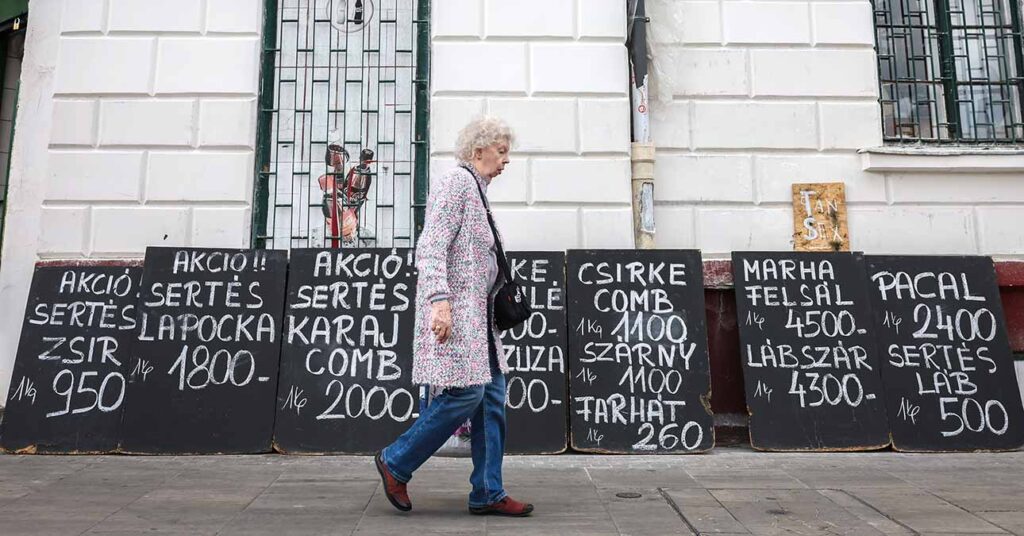 AKCIÓ!
SERTÉS
ZSIR
1kg 950
AKCIÓ!!
SERTÉS
LAPOCKA
1kg 1800-
AKCIÓ!!
SERTÉS
KARAJ
COMB
1kg 2000-
ZUZA
CSIRKE
COMB
1kg 1100
SZÁRNY
1kg 1100
FARHÁT
1kg 260
TAN
SEX
MARHA
FELSÁL
1kg 4500-
LÁBSZÁR
1kg 4300-
PACAL
1kg 2400
SERTÉS
LÁB
1kg 500